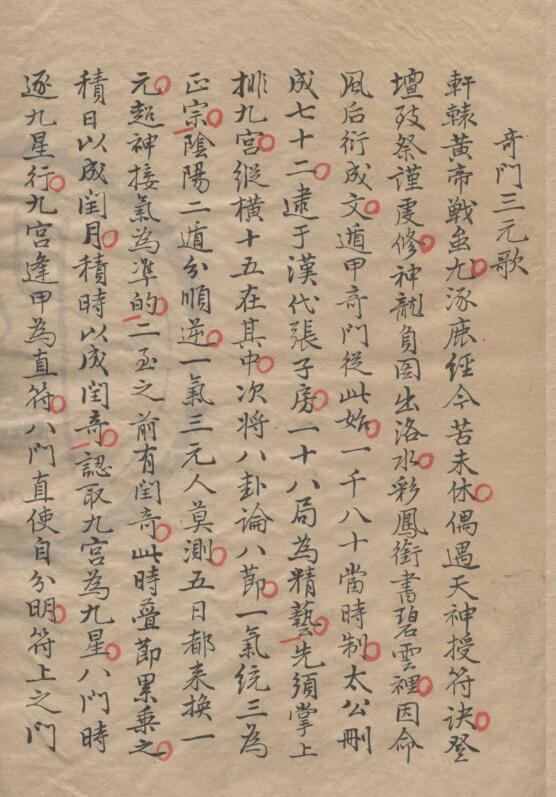 奇門三元歌
軒轅黃帝戰蚩尤涿鹿經今苦未休偶遇天神授符訣登
壇致祭謹虔修神龍負图出洛水彩鳳銜書碧雲裡因命
風后衍成文遁甲奇門從此始一千八十當時制太公刪
成七十二逮于漢代張子房一十八局為精藝先須掌上
排九宮縱橫十五在其中次將八卦論八節一氣統三為
正宗陰陽二遁分順逆一氣三元人莫測五日都来換一
元超神接氣為凖的二至之前有閏奇此時叠節累乘之
積日以成閏月積時以成閏奇認取九宮為九星八門時
逐九星行九宮逢甲為直符八門直使自分明符上之门